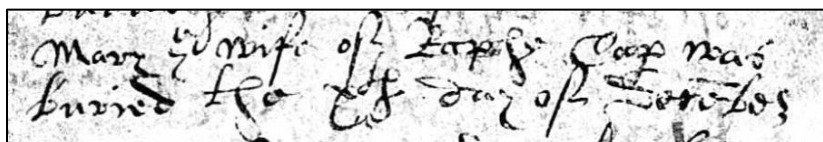 Mary ye wife of Raphe Cap was
buried the xth day of Decēber